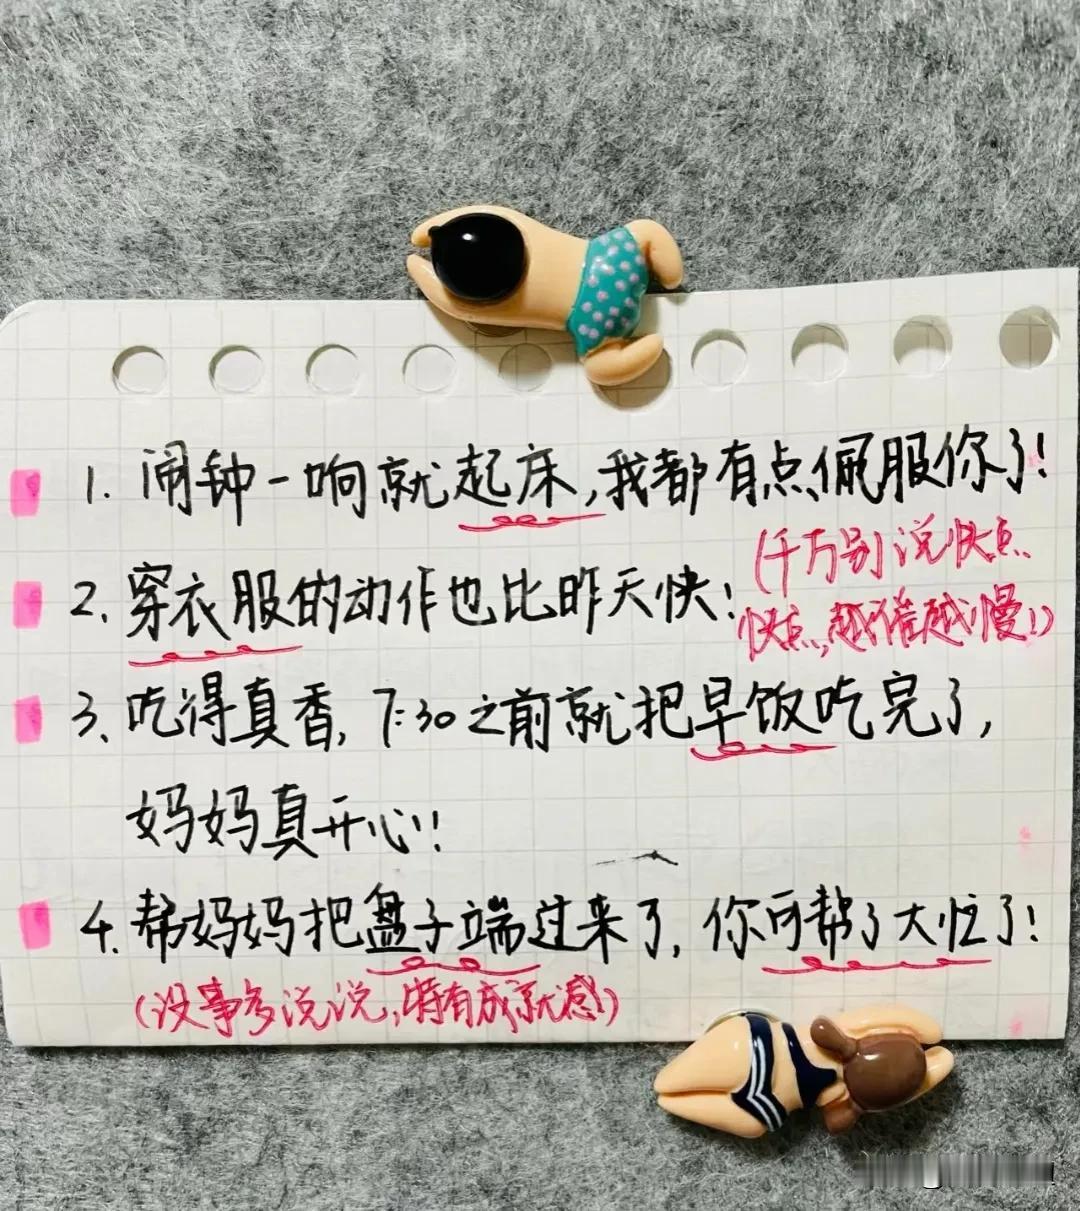 1. 闹钟一响就起床,我都有点佩服你了!
2. 穿衣服的动作也比昨天快!
(千万别说快点
快点,越催越慢!)
3、吃得真香, 7:30之前就把早饭吃完了,
妈妈真开心!!
4. 帮妈妈把盘子端过来了, 你可帮了大忙了!
(没事多说说,特有成就感)